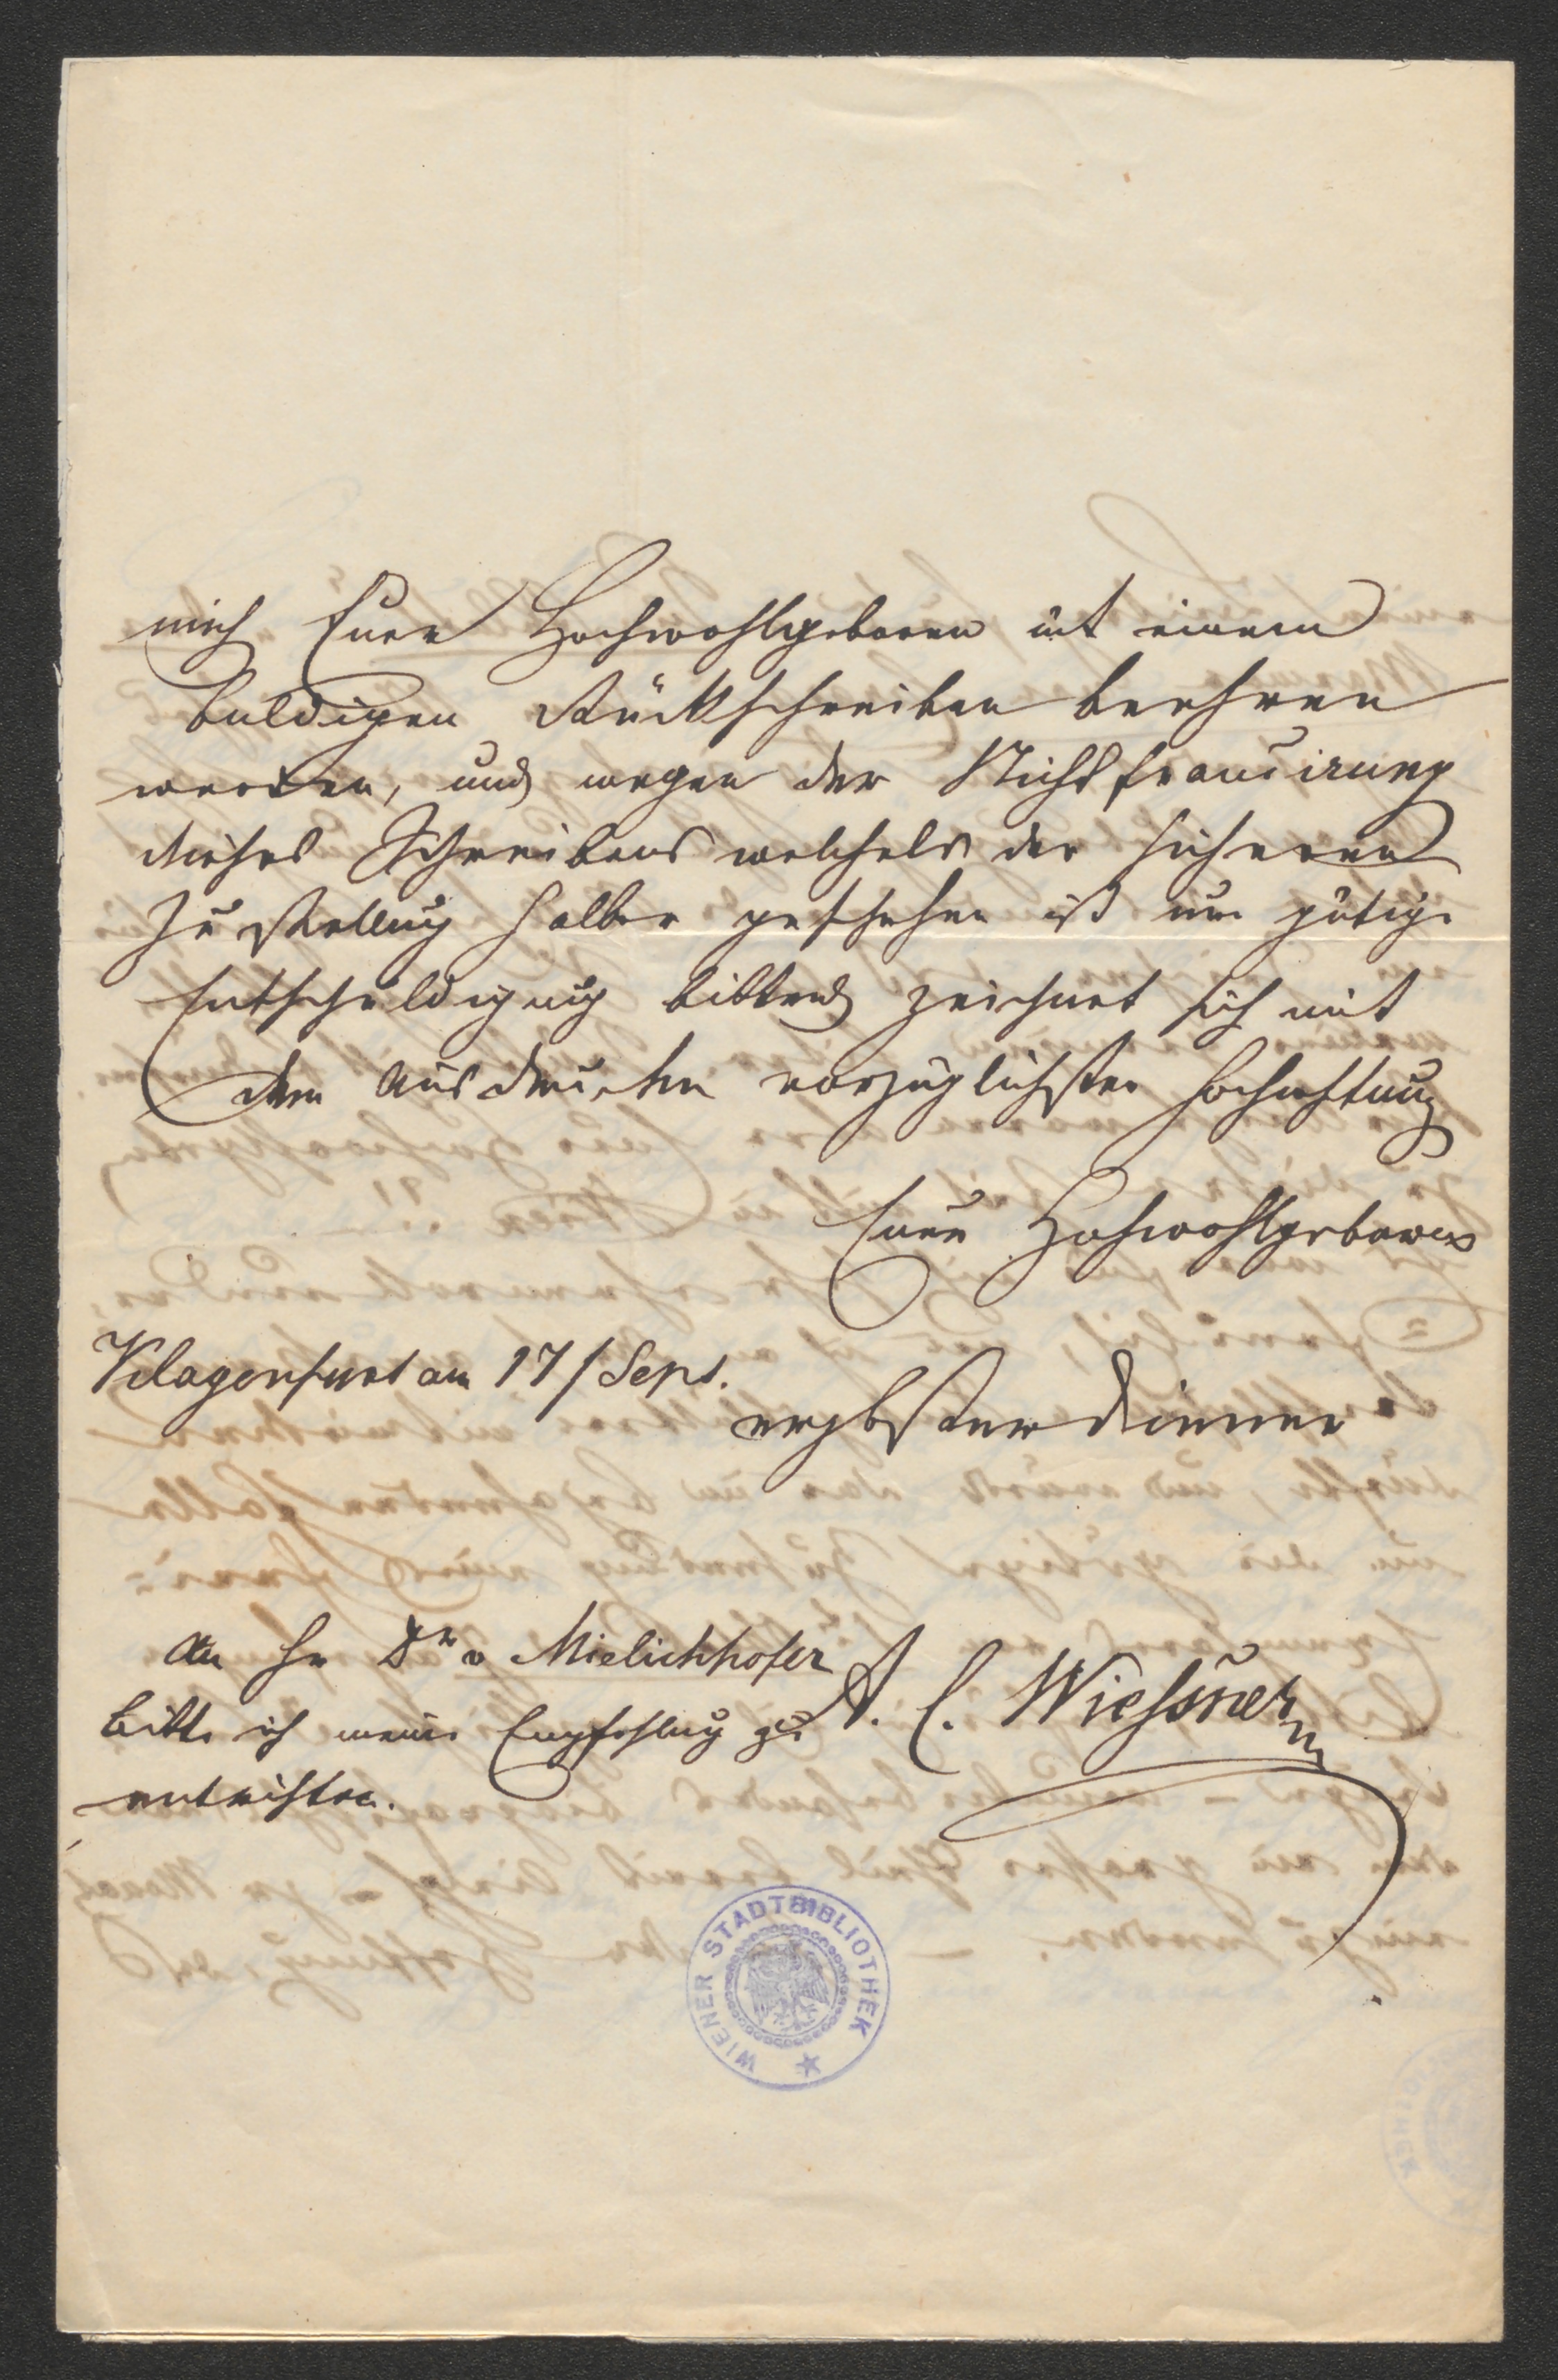 mich Euer Hochwohlgeboren mit einem
baldigen Rückschreiben beehren
werden, und wegen der Nichtfrancirung
dieses Schreibens welches der sicheren
Zustellung halber geschehen ist um gütige
Entschuldigung bittend zeichnet sich mit
dem Ausdrucke vorzüglichster Hochachtung
Euer Hochwohlgeboren
Klagenfurt am 17/Sept.
ergebster Diener
An Hr Dr v Mielichhofer
bitte ich meine Empfehlung zu
entrichten.
A. C. Wiessner
WIENER STADTBIBLIOTHEK